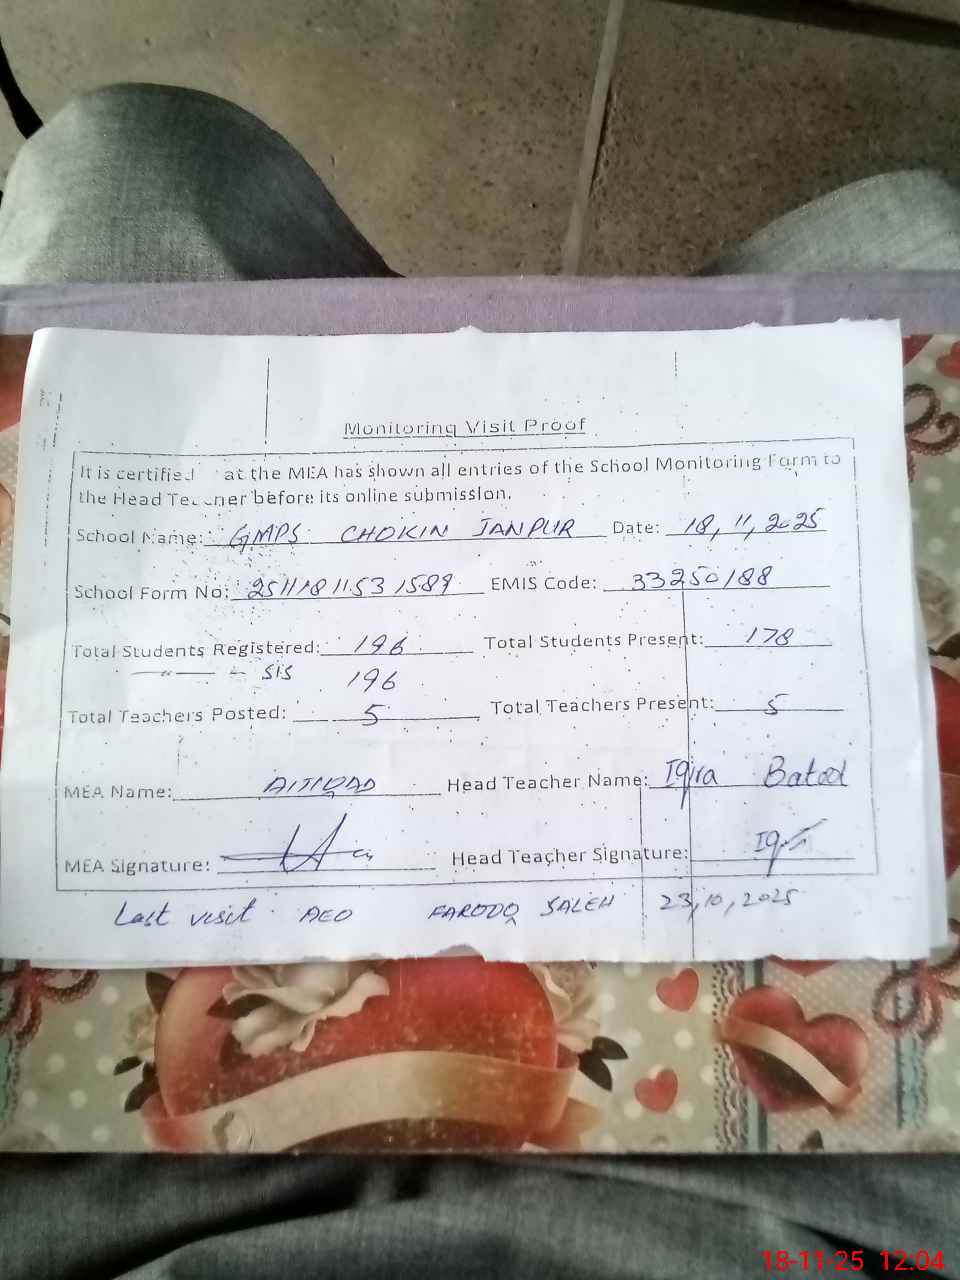 Monitoring Visit Proof
It is certified at the MEA has shown all entries of the School Monitoring Form to
the Head Teacher before its online submission.
School Name: GMPS CHOKIN JANPUR Date: 18, 11, 2025
School Form No: 2511181153 1589 EMIS Code: 33250188
Total Students Registered: 196 Total Students Present: 178
SIS 196
Total Teachers Posted: 5 Total Teachers Present: 5
MEA Name: Head Teacher Name: Iqra Batool
MEA Signature: Head Teacher Signature:
Last visit AEO FAROOQ SALEH 23, 10, 2025
18-11-25 12:04